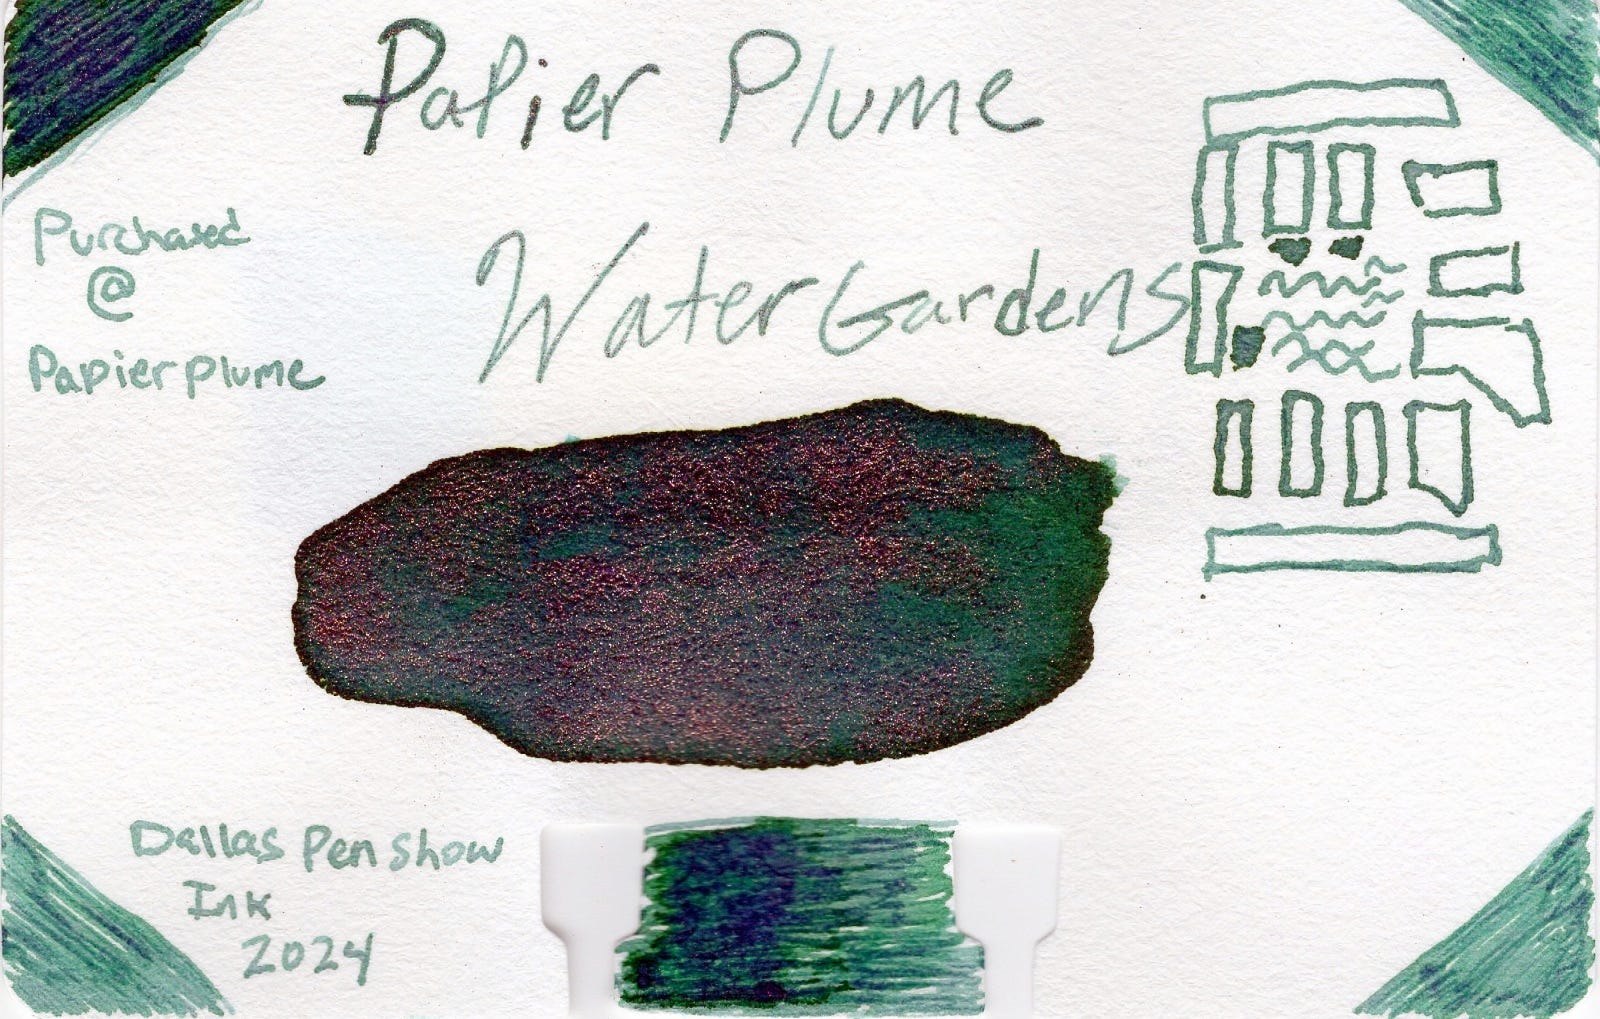 Papier Plume
Water Gardens
Purchased
@
Papier plume
Dallas Pen Show
Ink
2024